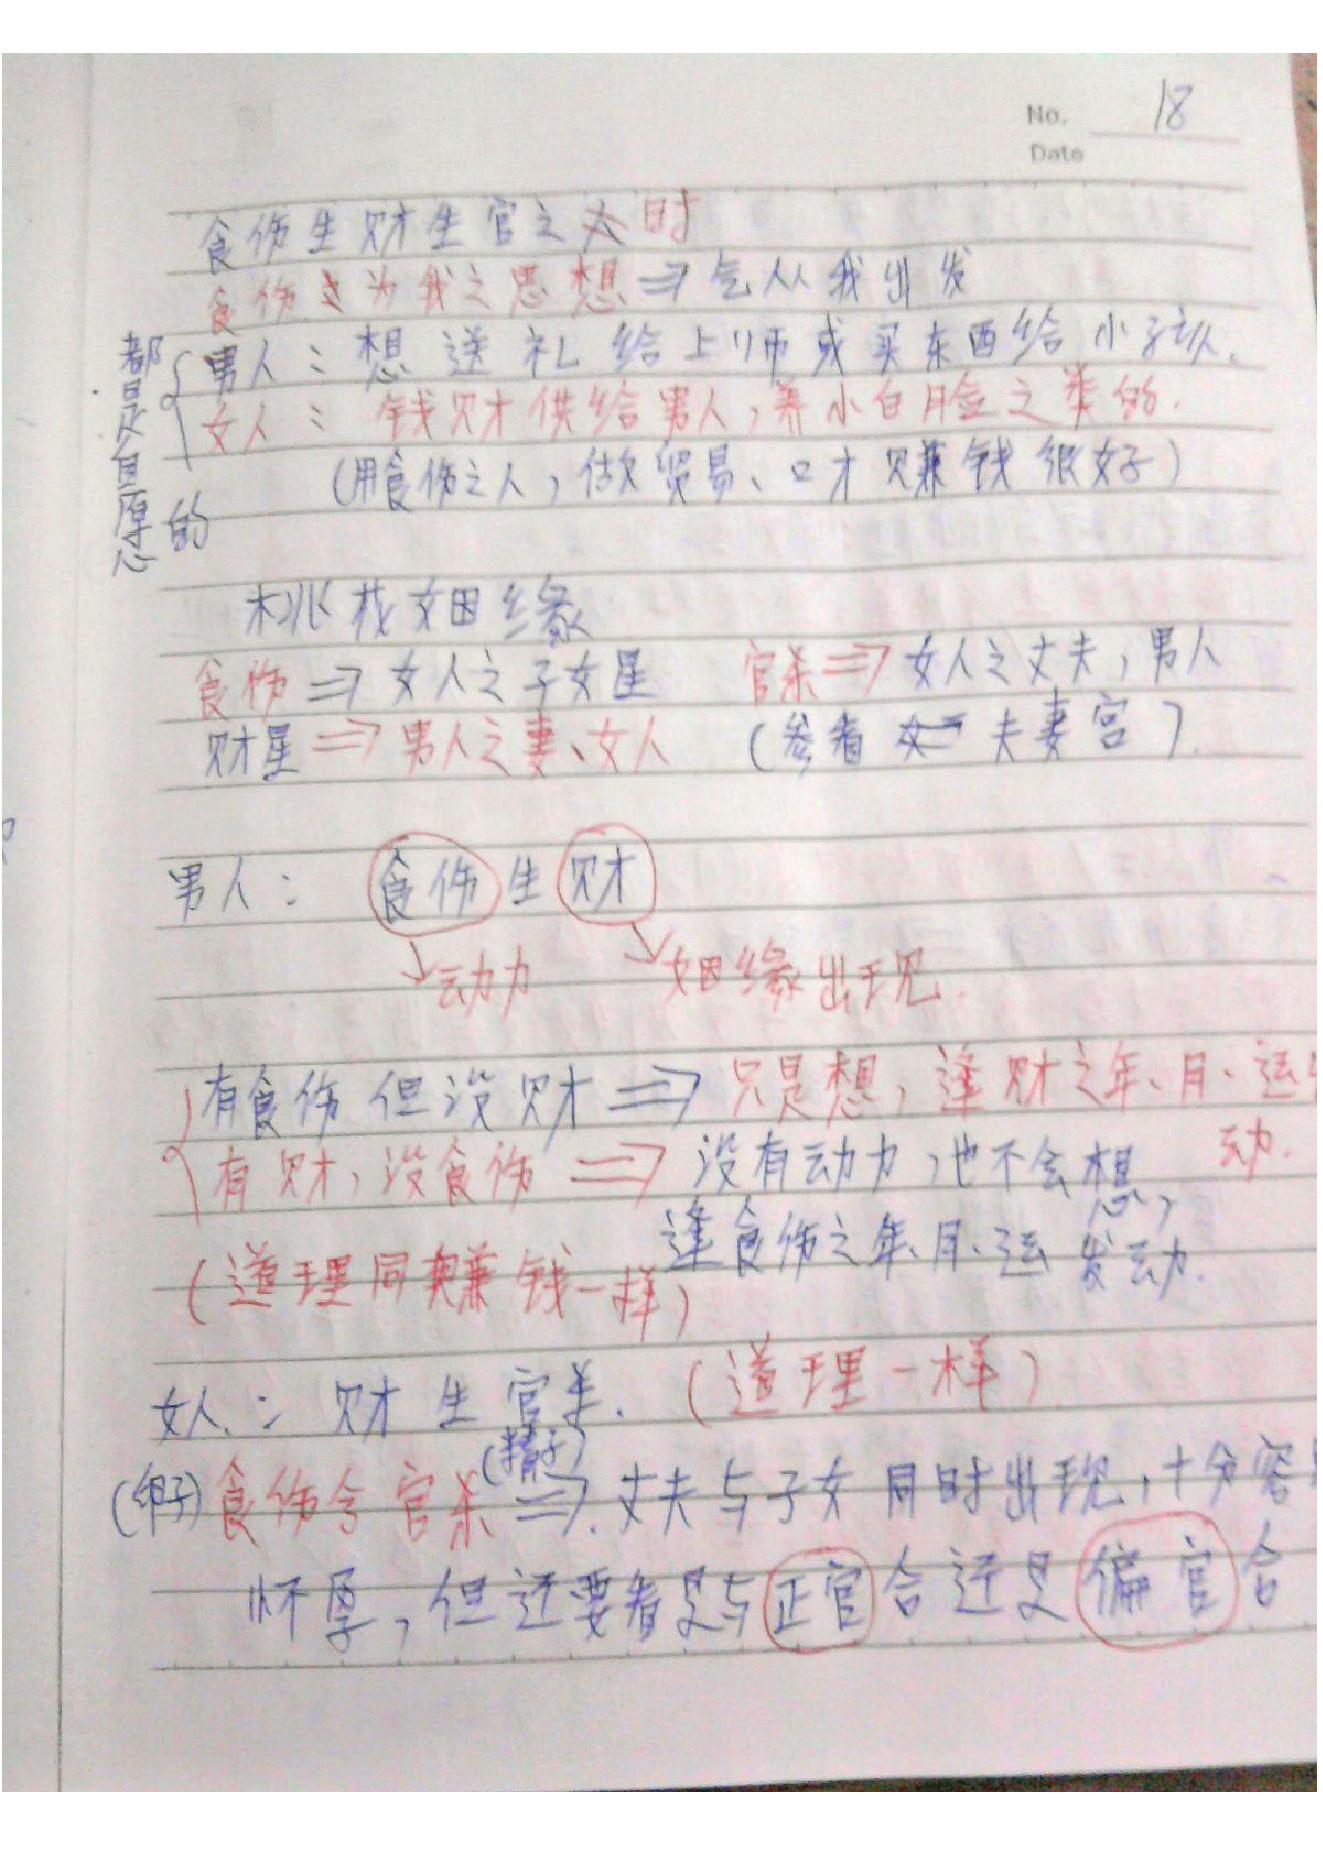 No. 18
Date
食伤生财生官之时
食伤为我之思想⇒气从我出发
都是自愿的
男人：想送礼给上师或买东西给小孩.
女人：钱财供给男人,养小白脸之类的.
(用食伤之人,做贸易、口才赚钱很好)
桃花姻缘
食伤⇒女人之子女星 官杀⇒女人之丈夫,男人
财星⇒男人之妻、女人 (参看 夫妻宫)
男人：食伤生财
↓动力 ↘姻缘出现.
有食伤但没财⇒只是想,逢财之年、月、运
动.
有财,没食伤⇒没有动力,也不会想,
逢食伤之年、月、运 发动.
(道理同赚钱一样)
女人：财生官杀.(道理一样)
(精子)
(卵子)食伤合官杀⇒.丈夫与子女同时出现,十分容
怀孕,但还要看是与正官合还是偏官合